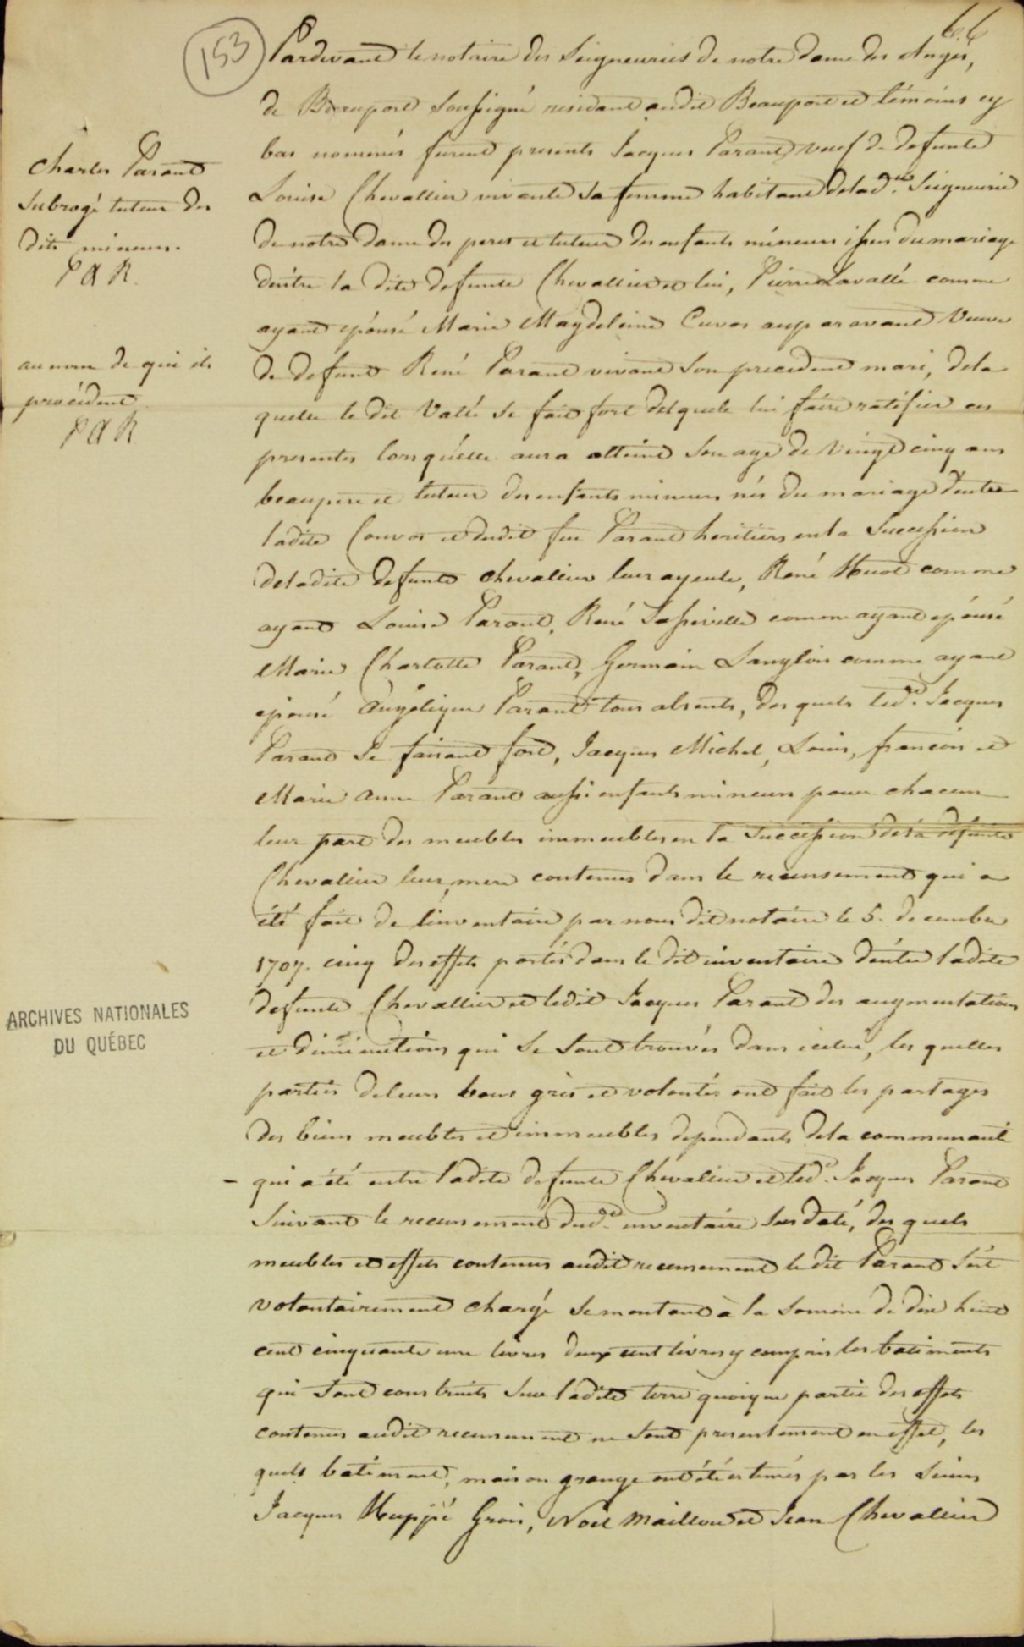 66
153
Pardevant le notaire des Seigneuries de notre dame des Anges,
de Beauport Soussigné residant audit Beauport et témoins cy
bas nommés furent presents Jacques Parant veuf de defunte
Louise Chevallier vivante sa femme habitant de lad.te Seigneurie
de notre dame des peres et tuteur des enfants mineurs issus du mariage
d'entre la dite defunte Chevallier et lui, Pierre Lavallé comme
ayant epousé Marie Magdeleine Cuvos auparavant Veuve
de defunt René Parant vivant son precedent mari, de la
quelle le dit Vallé se fait fort de lui faire ratifier ces
presentes lorsquelle aura atteint son age de vingt cinq ans
beaupere et tuteur des enfants mineurs nés du mariage d'entre
ladite Couvos et dudit feu Parant heritiers en la Succession
de ladite defunte Chevallier leur ayeule, René Huot comme
ayant Louise Parant, René comme ayant epousé
Marie Charlotte Parant, Germain Langlois comme ayant
epousé Angélique Parant tous absents, des quels led.t Jacques
Parant se faisant fort, Jacques Michel, Louis, francois et
Marie Anne Parant aussi enfants mineurs pour chacun
leur part des meubles immeubles en la Succession de la defunte
Chevalier leur mere contenus dans le recensement qui a
été fait de l'inventaire par nous dit notaire le 5. decembre
1707. cinq des effets portés dans le dit inventaire d'entre ladite
defunte Chevallier et ledit Jacques Parant des augmentations
et diminutions qui se sont trouvés dans icelui, les quelles
parties de leurs bons grés et volontés ont fait les partages
des biens meubles et immeubles dependants de la communauté
- qui a été entre ladite defunte Chevalier et led.t Jacques Parant
Suivant le recensement dud.t inventaire Sus daté, des quels
meubles et effets contenus audit recensement le dit Parant s'est
volontairement chargé se montant à la Somme de dix huit
cent cinquante une livres deux cent livres y compris les batiments
qui sont construits sur ladite terre quoique partie des effets
contenus audit recensement ne sont presentement en effet, les
quels batiment, maison grange ont été estimés par les Sieurs
Jacques Huppé Grois, Noel Maillou et Jean Chevallier
charles Parant
Subrogé tuteur des
dits mineurs.
P X R.
au nom de qui ils
procédent
P X R
ARCHIVES NATIONALES
DU QUÉBEC